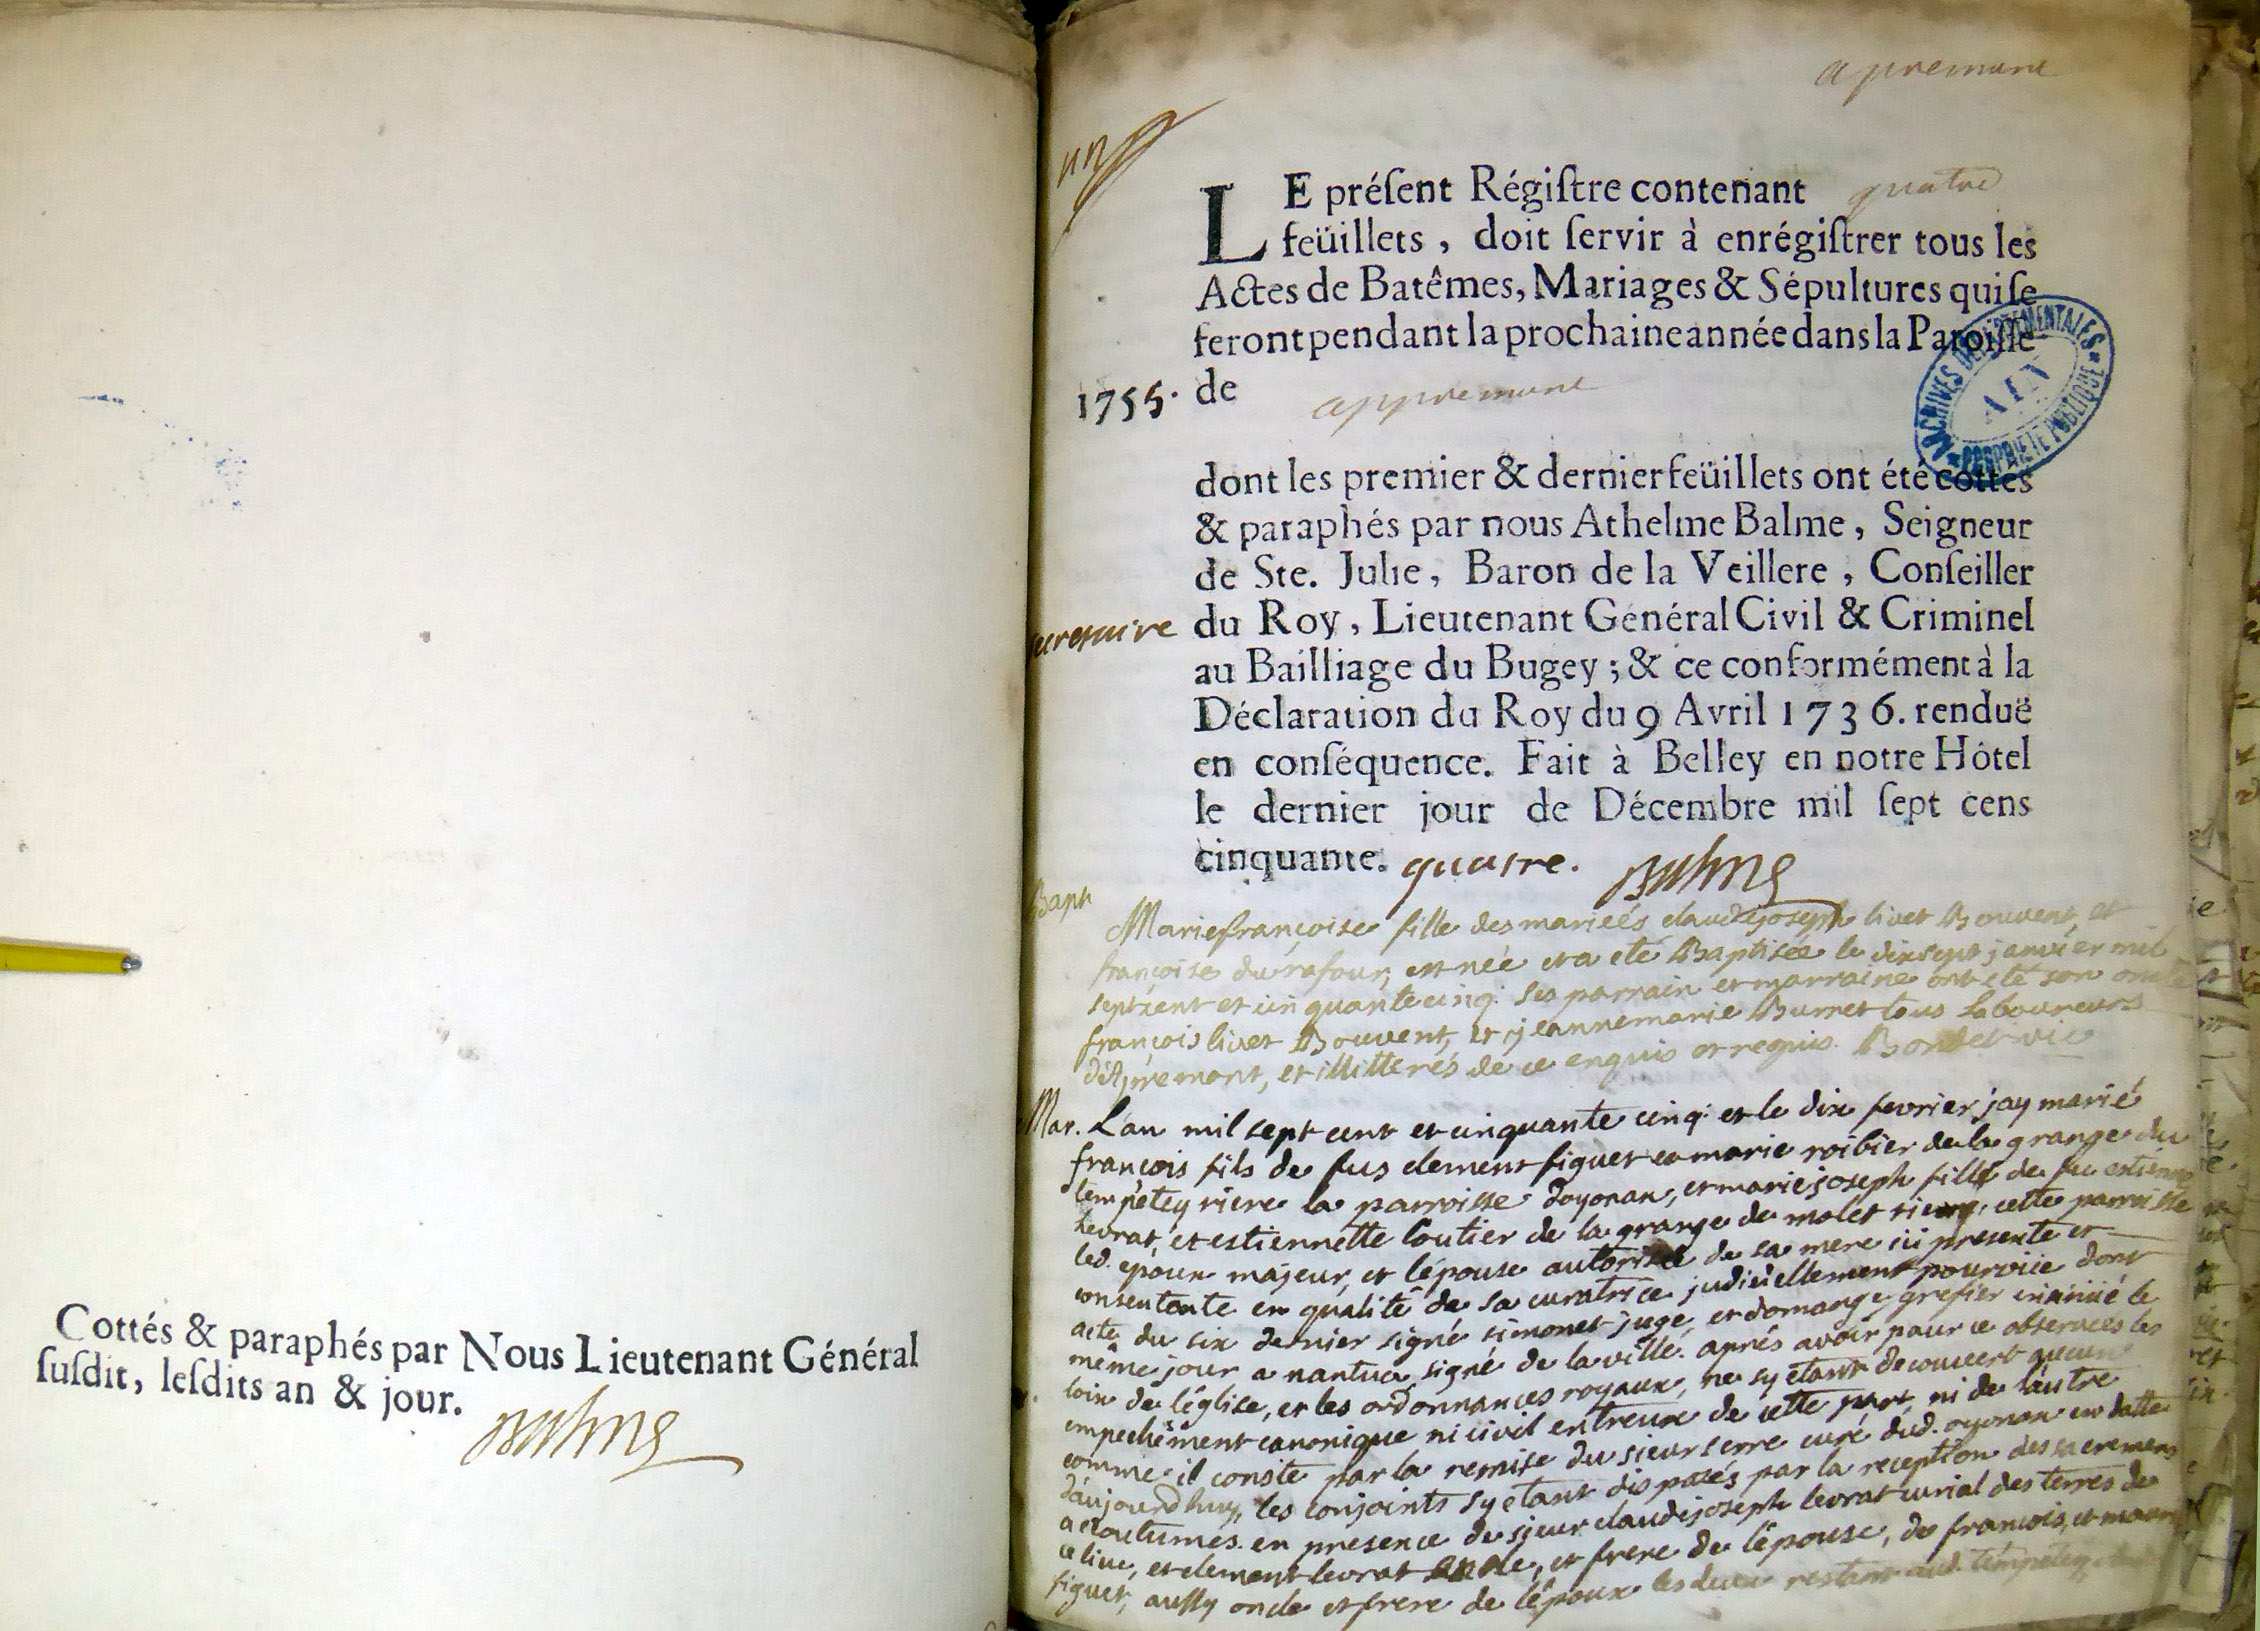 Cottés & paraphés par Nous Lieutenant Général
ſuſdit, leſdits an & jour.
Balme
apremunt
LE préſent Régiſtre contenant quatre
feüillets, doit ſervir à enrégiſtrer tous les
Actes de Batêmes, Mariages & Sépultures qui ſe
feront pendant la prochaine année dans la Paroiſſe
1755. de appremunt
ARCHIVES DÉPARTEMENTALES
AIN
PROPRIÉTÉ PUBLIQUE
dont les premier & dernier feüillets ont été cottés
& paraphés par nous Athelme Balme, Seigneur
de Ste. Julie, Baron de la Veillere, Conſeiller
du Roy, Lieutenant Général Civil & Criminel
au Bailliage du Bugey; & ce conformément à la
Déclaration du Roy du 9 Avril 1736. renduë
en conſéquence. Fait à Belley en notre Hôtel
le dernier jour de Décembre mil ſept cens
cinquante. quatre. Balme
Bapt
Mariefrançoise fille des mariéés claudejoseph livet Bouvent, et
françoise durafour, est née et a eté Baptisée le dixsept janvier mil
septcent et cinquantecinq. ses parrain et marraine ont eté son oncle
françois livet Bouvent, et jeannemarie Burret tous laboureurs
d'Apremont, et illitterés de ce enquis et requis. Bondet vic
Mar. L'an mil sept cent et cinquante cinq. et le dix fevrier j'ay marié
françois fils de fus clement figuet et marie roibier de la grange du
tempêtey riere la parroisse d'oyonan, et mariejoseph fille de fu estienne
levrat, et estiennette coutier de la grange de molet cette parroisse
led. epoux majeur, et l'épouse autorisée de sa mere ici presente et
consentante en qualité de sa curatrice judiciellement pourvüe dont
acte du six dernier signé simonet juge, et domange grefier insinüé le
même jour a nantua signé de la ville. aprés avoir pour ce observées les
loix de l'église, et les ordonnances royaux, ne s'y etant decouvert aucun
empechêment canonique ni civil entreux de cette part, ni de l'autre
comme il conste par la remise du sieur serre curé dud. oyonan en datte
d'aujourd'huy, les conjoints s'y etant disposés par la reception des sacremens
accoutumés. en presence de sieur claudejoseph levrat curial des terres de
ce lieu, et clement levrat oncle, et frere de l'épouse, de françois, et
figuet, aussy oncle et frere de l'époux les deux restant aud. tempetey,